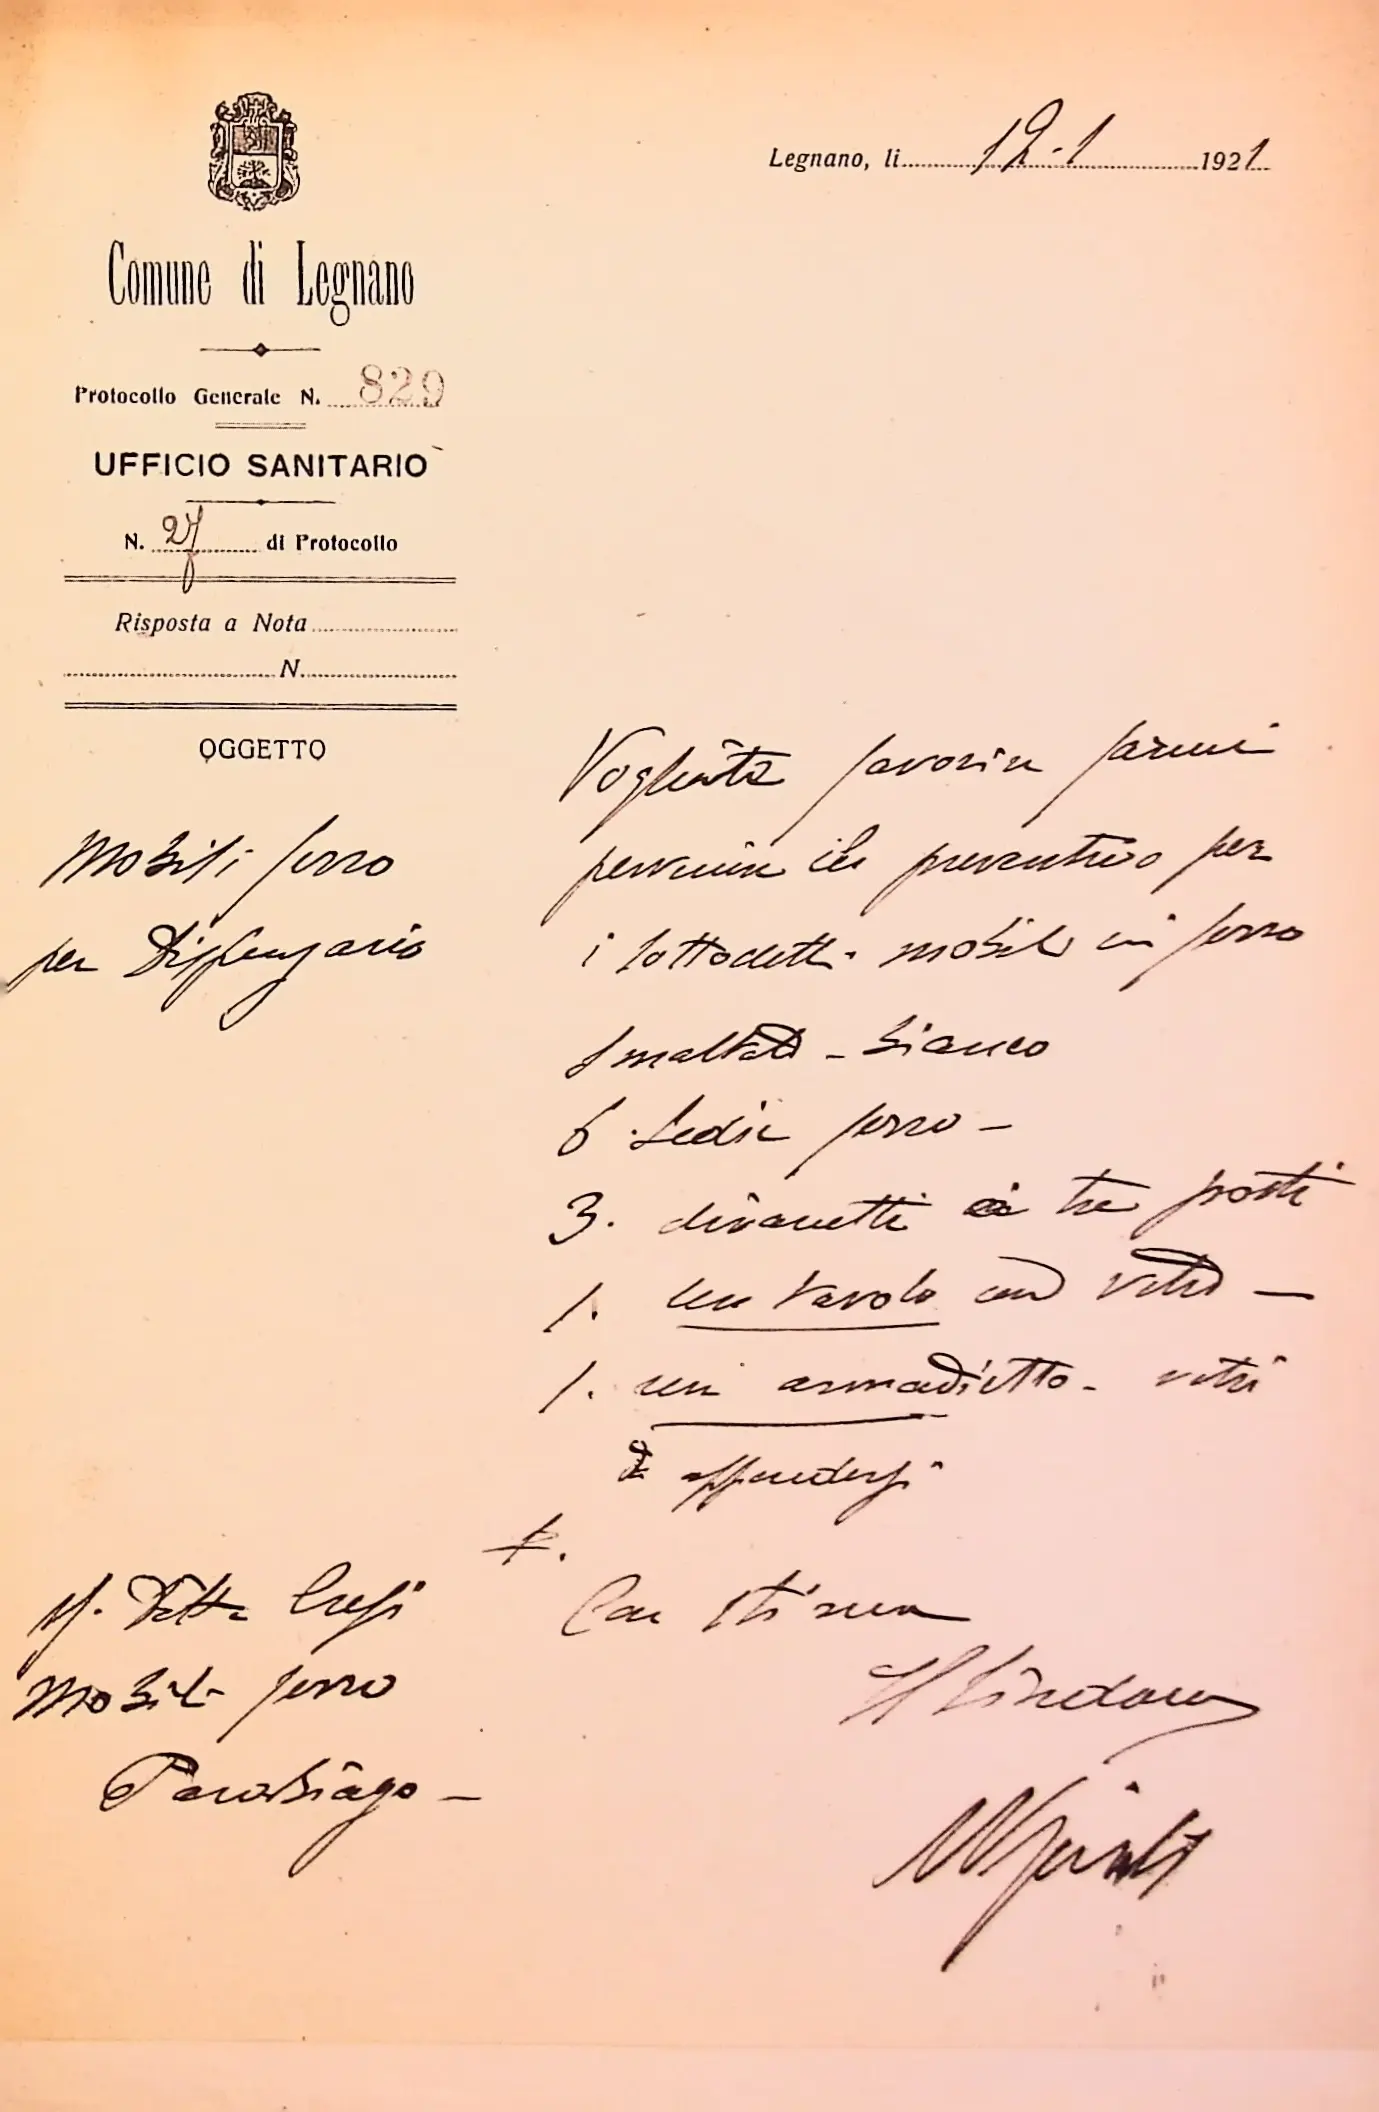 Legnano, li 12-1 1921
Comune di Legnano
Protocollo Generale N. 829
UFFICIO SANITARIO
N. 27 di Protocollo
Risposta a Nota
N.
OGGETTO
Mobili ferro
per Dispensario
Vogliate favorire farmi
pervenire il preventivo per
i sottodetti mobili in ferro
smaltato - bianco
6 sedie ferro -
3. divanetti a tre posti
1. un tavolo con vetro -
1. un armadietto - vetri
da appendersi
Con stima
Il Sindaco
Ditta Crespi
Mobili ferro
Parabiago -